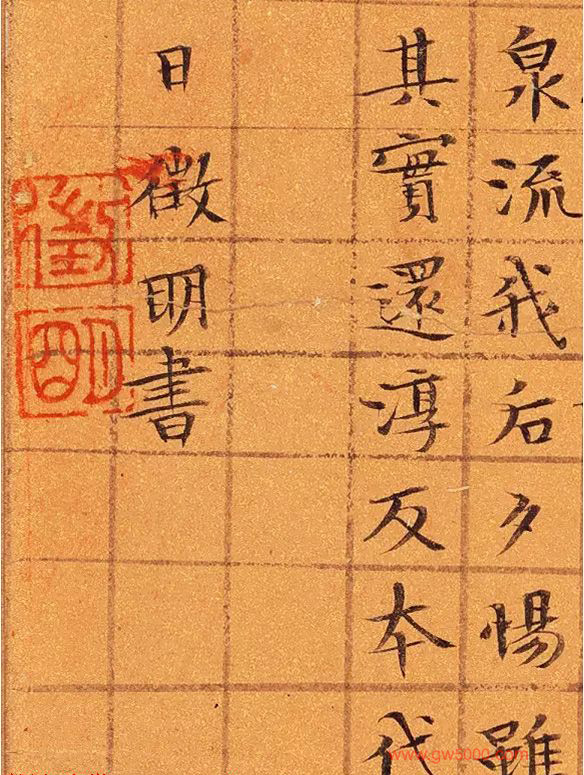 泉流我后夕惕雖
其實還淳反本代
日徵明書
徵
明
www.gw5000.com